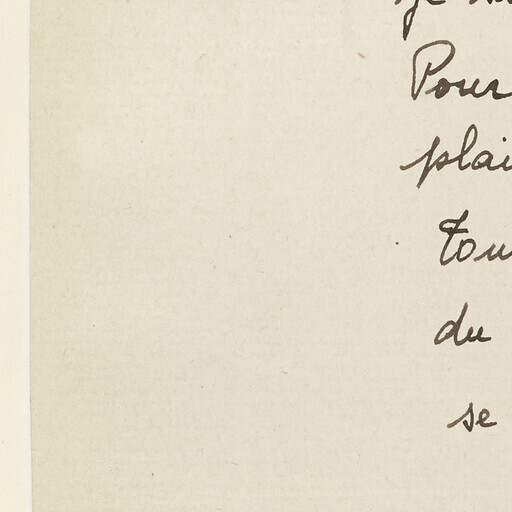 Pour
plai
tou
du
se